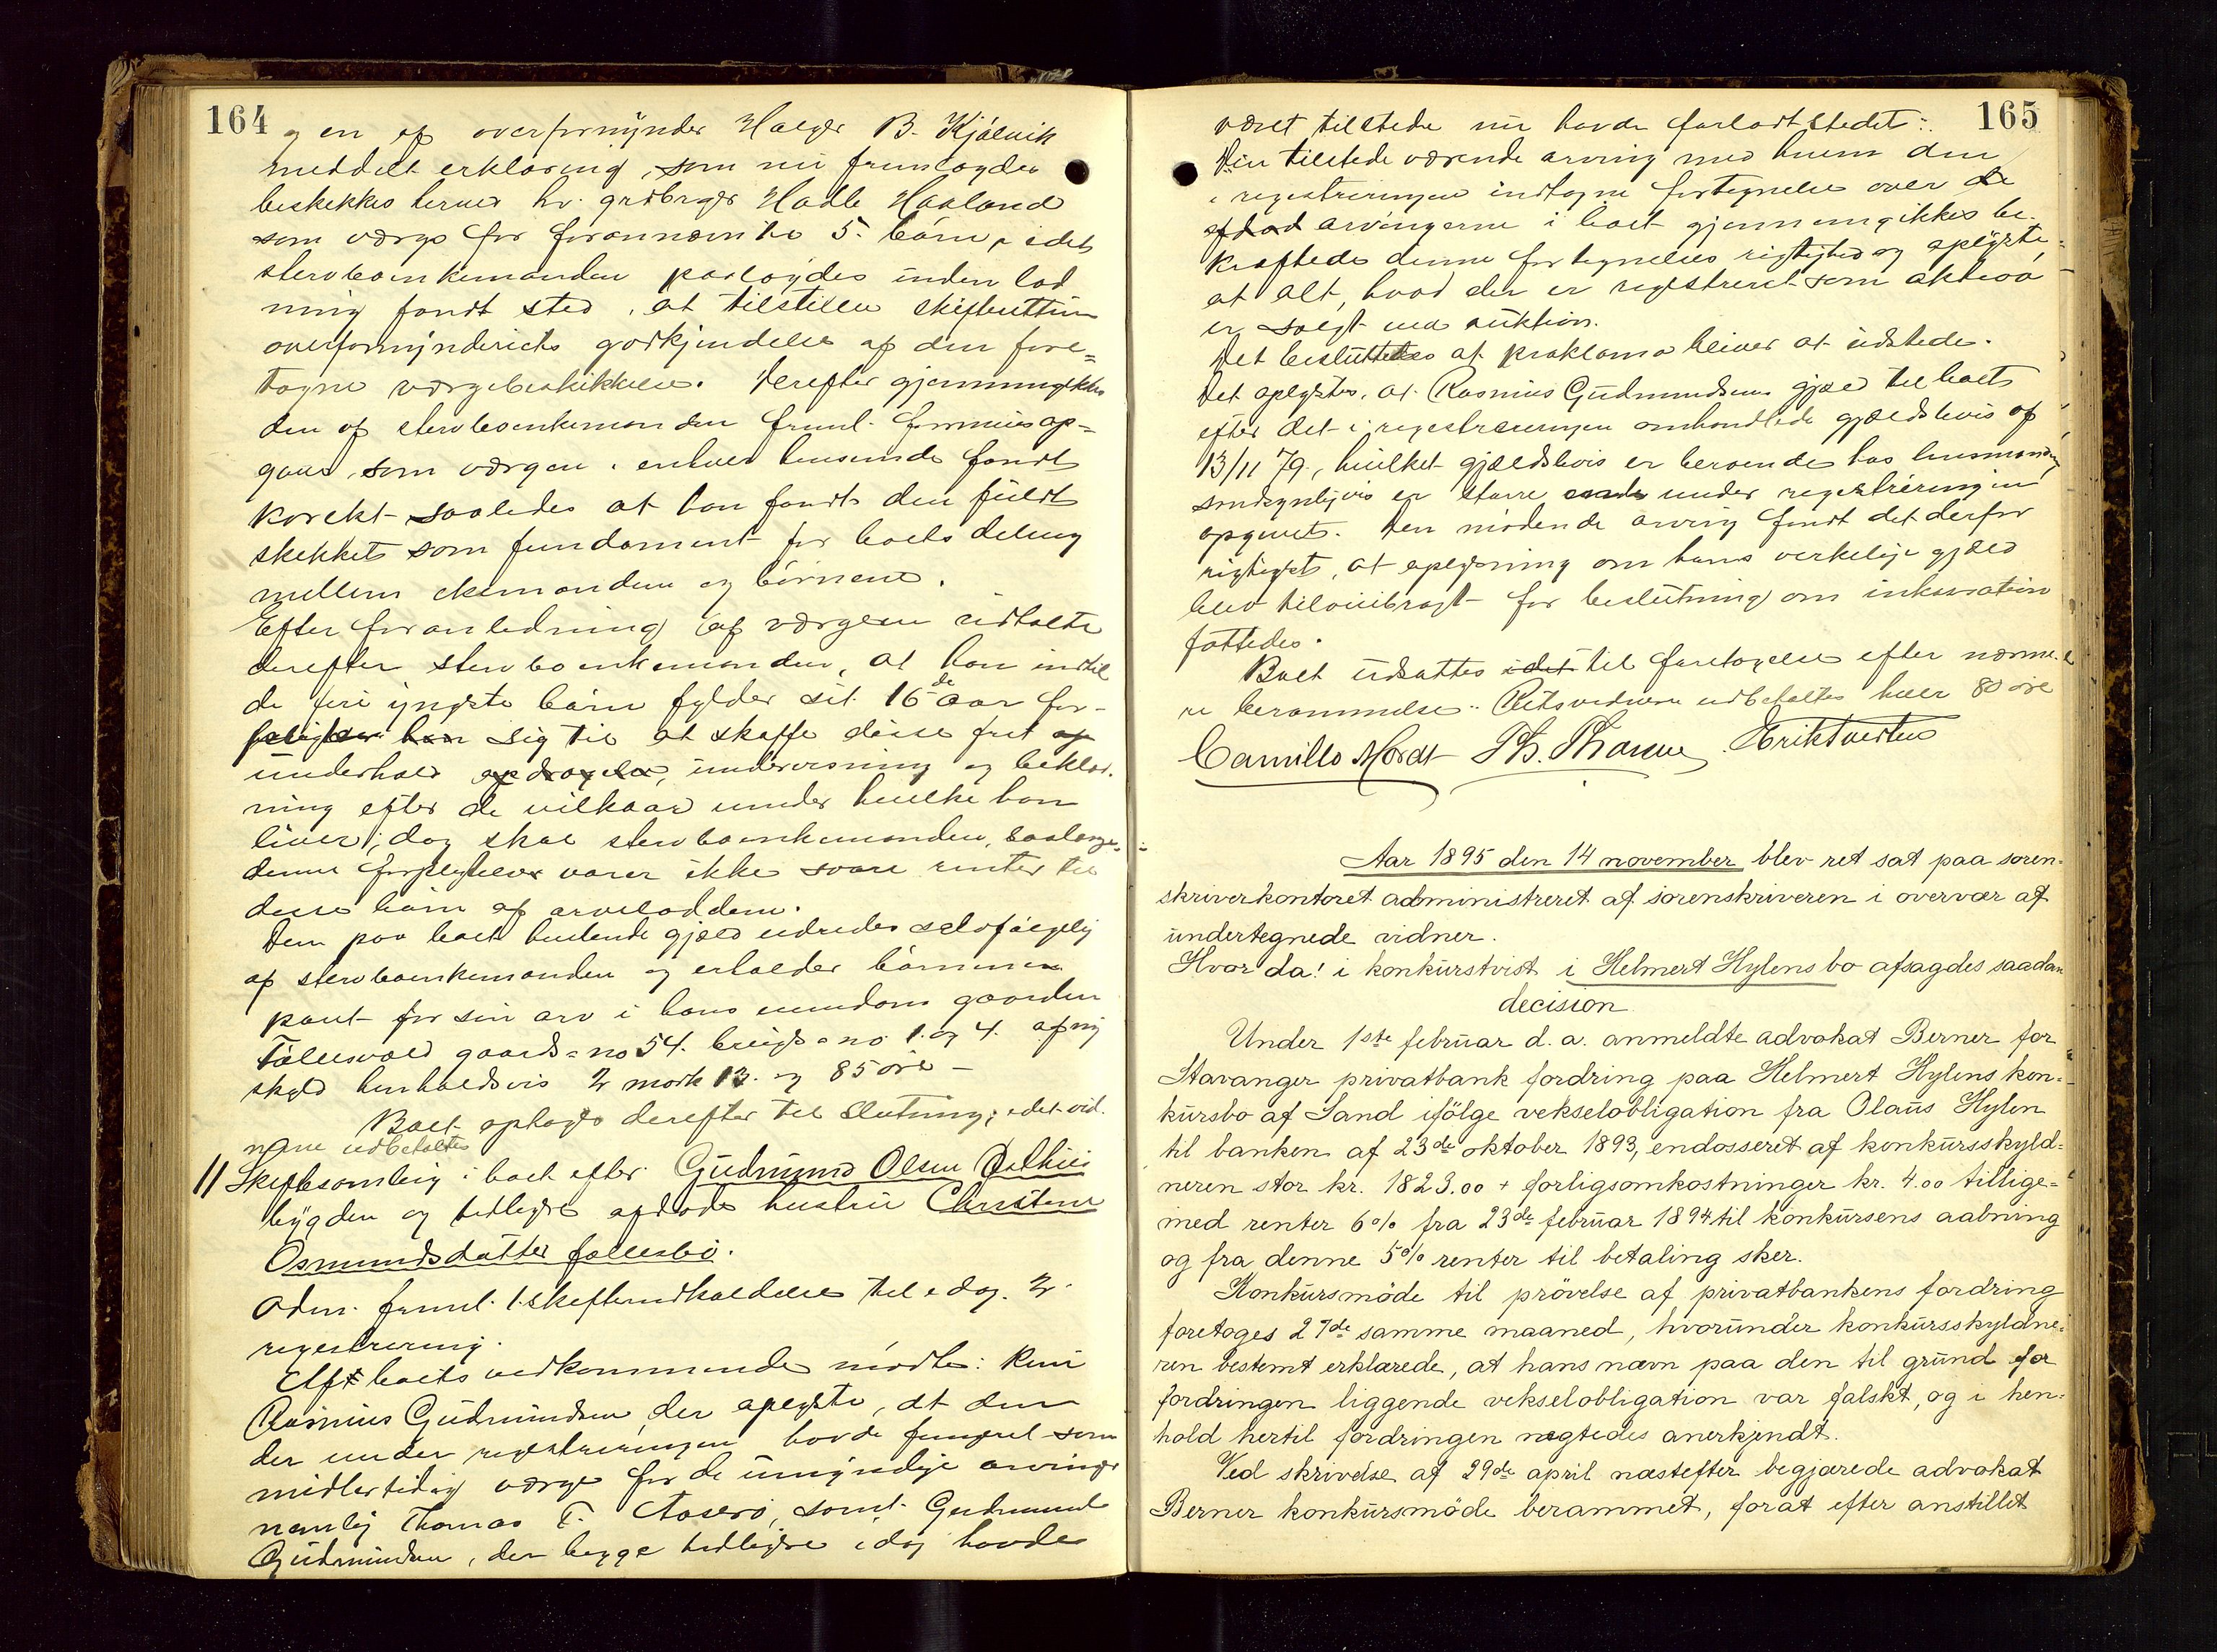 164
og en af overformynder Holger B. Kjølvik
meddelt erklæring, som nu fremlagdes
beskikkes herved hr. grdbrgr Hadle Haaland
som værge for forannævnte 5 børn, idet
stervboenkemanden paalagdes inden lod-
ning fandt sted, at tilstille skifteretten
overformynderiets godkjendelse af den fore-
tagne værgebeskikkelse. Derefter gjennemgikkes
den af stervboenkemanden freml. formuesop-
gave, som værgen i enhver henseende fandt
korekt saaledes at han fandt den fuldt
skikket som fundament for boets deling
mellem ekemanden og børnene.
Efter foranledning af værgen udtalte
derefter stervboenkemanden, at han indtil
de fire yngste børn fylder sit 16de aar for-
pligter han sig til at skaffe disse frit
underhold opdragelse, undervisning og beklæd-
ning efter de vilkaar under hvilke han
lever; dog skal stervboenkemanden, saalænge
denne forpligtelse varer ikke svare renter til
disse børn af arvelodden.
Den paa boet hvilende gjæld udredes selvfølgelig
af stervboenkemanden og erholder børnene
pant for sin arv i hans eiendom gaarden
gaards-no 54. brugs-no 1. og 4. af ny
skyld henholdsvis 2 mark 13. og 85 øre –
Boet optoges derefter til slutning; idet vid-
nerne udbetaltes
11 Skiftesamling i boet efter Gudmund Olsen
bygden og tidligere afdøde hustru Christene
Osmundsdatter
Adm. freml. 1. skifteindkaldelse til idag. 2.
registrering.
For boets vedkommende mødte: Kun
Rasmus Gudmundsen der oplyste, at den
der under registreringen havde fungeret som
midlertidig værge for de umyndige arvinger
nemlig Thomas T. Aaserø, samt Gudmund
Gudmundsen, der begge tidligere idag havde
165
været tilstede nu havde forladt stedet:
Den tilstedeværende arving med hvem den
i registreringen indtagne fortegnelse over de
afdød arvingerne i boet gjennemgikkes be-
kræftede denne fortegnelses rigtighed og oplyste,
at alt, hvad der er registreret som aktiva
er solgt ved auktion.
Det besluttedes at proklama bliver at udstede.
Det oplystes, at Rasmus Gudmundsens gjæld til boet
efter det i registreringen omhandlede gjældsbevis af
13/11 79, hvilket gjældsbevis er beroende hos lensmanden,
sandsynligvis er større under registreringen
opgivet. Den mødende arving fandt det derfor
rigtigst, at oplysning om hans verkelige gjæld
blev tilveiebragt før beslutning om inkassation
fattedes.
Boet udsattes idet til foretagelse efter nærme-
re berammelse. Retsvidnerne udbetaltes hver 80 øre
Camillo Mordt Th. Thorsen Erik Tveiten
Aar 1895 den 14 november blev ret sat paa soren-
skriverkontoret administreret af sorenskriveren i overvær af
undertegnede vidner.
Hvor da! i konkurstvist i Helmert Hylens bo afsagdes saadan
decision
Under 1ste februar d. a. anmeldte advokat Berner for
Stavanger privatbank fordring paa Helmert Hylens kon-
kursbo af Sand ifølge vekselobligation fra Olaus Hylen
til banken af 23de oktober 1893, endosseret af konkursskyld-
neren stor kr. 1823.00 + forligsomkostninger kr. 4.00 tillige-
med renter 6% fra 23de februar 1894 til konkursens aabning
og fra denne 5% renter til betaling sker.
Konkursmøde til prøvelse af privatbankens fordring
foretoges 27de samme maaned, hvorunder konkursskyldne-
ren bestemt erklærede, at hans navn paa den til grund for
fordringen liggende vekselobligation var falskt, og i hen-
hold hertil fordringen nægtedes anerkjendt.
Ved skrivelse af 29de april næstefter begjærede advokat
Berner konkursmøde berammet, forat efter anstillet